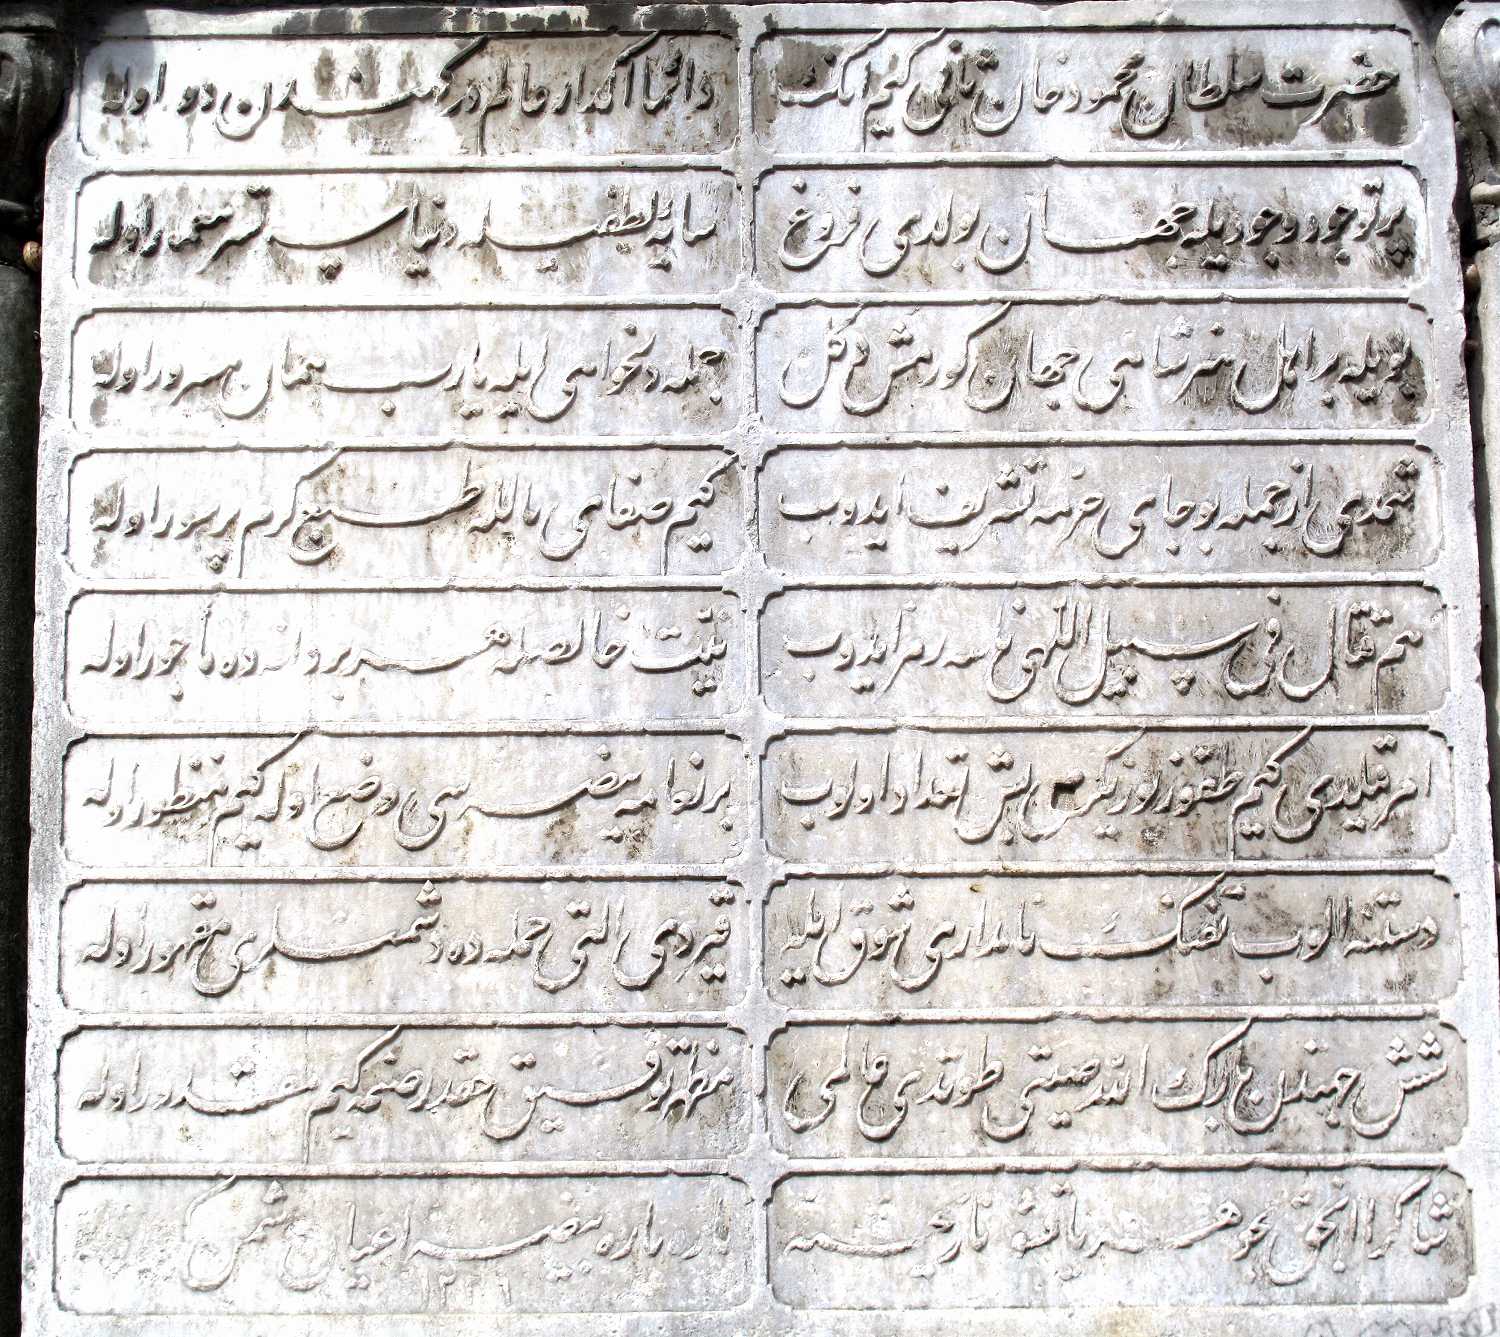 حضرت سلطان محمود خان ثانی کیم انک
دائما اکدار عالم در کهندن دور اوله
پرتو جود وجودیله جهان بولدی فروغ
سایهٔ لطفیله دنیا سر تسر معمور اوله
بویله بر اهل هنر شاهی جهان کورمش دکل
جمله دلخواهی ایله یارب همان مسرور اوله
قیمدی از جمله بو جای خرمه تشریف ایدوب
کیم صفای ایله طبع کرم پرسور اوله
هم تقال فی سبیل اللهی رمز ایدوب
نیت خالصله هر بر دانه ده ماجور اوله
امر قیلیدی کیم طقوز یوز یکرمی بش تعداد اولوب
بر نعامه بیضه سی وضع اوله کیم منظور اوله
دستنه الوب تفنک نامداری شوق ایله
قیردی التی حمله ده دشمنلری مقهور اوله
شش جهتدن بارک الله صیتی طوتدی عالمی
مظهر توفیق حقدر ضمه کیم مقتدر اوله
شاکرا الحق جوهر یاقشور تاریخمه
پاره پاره بیضه اعیان دشمن
١٢٢٦